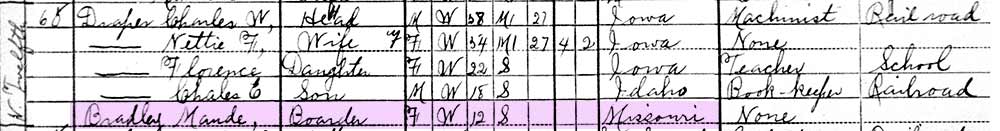 W Twelfth
68 Draper Charles W, Head M W 58 M1 27 Iowa Machinist Rail road
—— Nettie F, Wife F W 54 M1 27 4 2 Iowa None
—— Florence Daughter F W 22 S Iowa Teacher School
—— Chales E Son M W 18 S Idaho Book-keeper Railroad
Bradley Maude, Boarder F W 12 S Missouri None